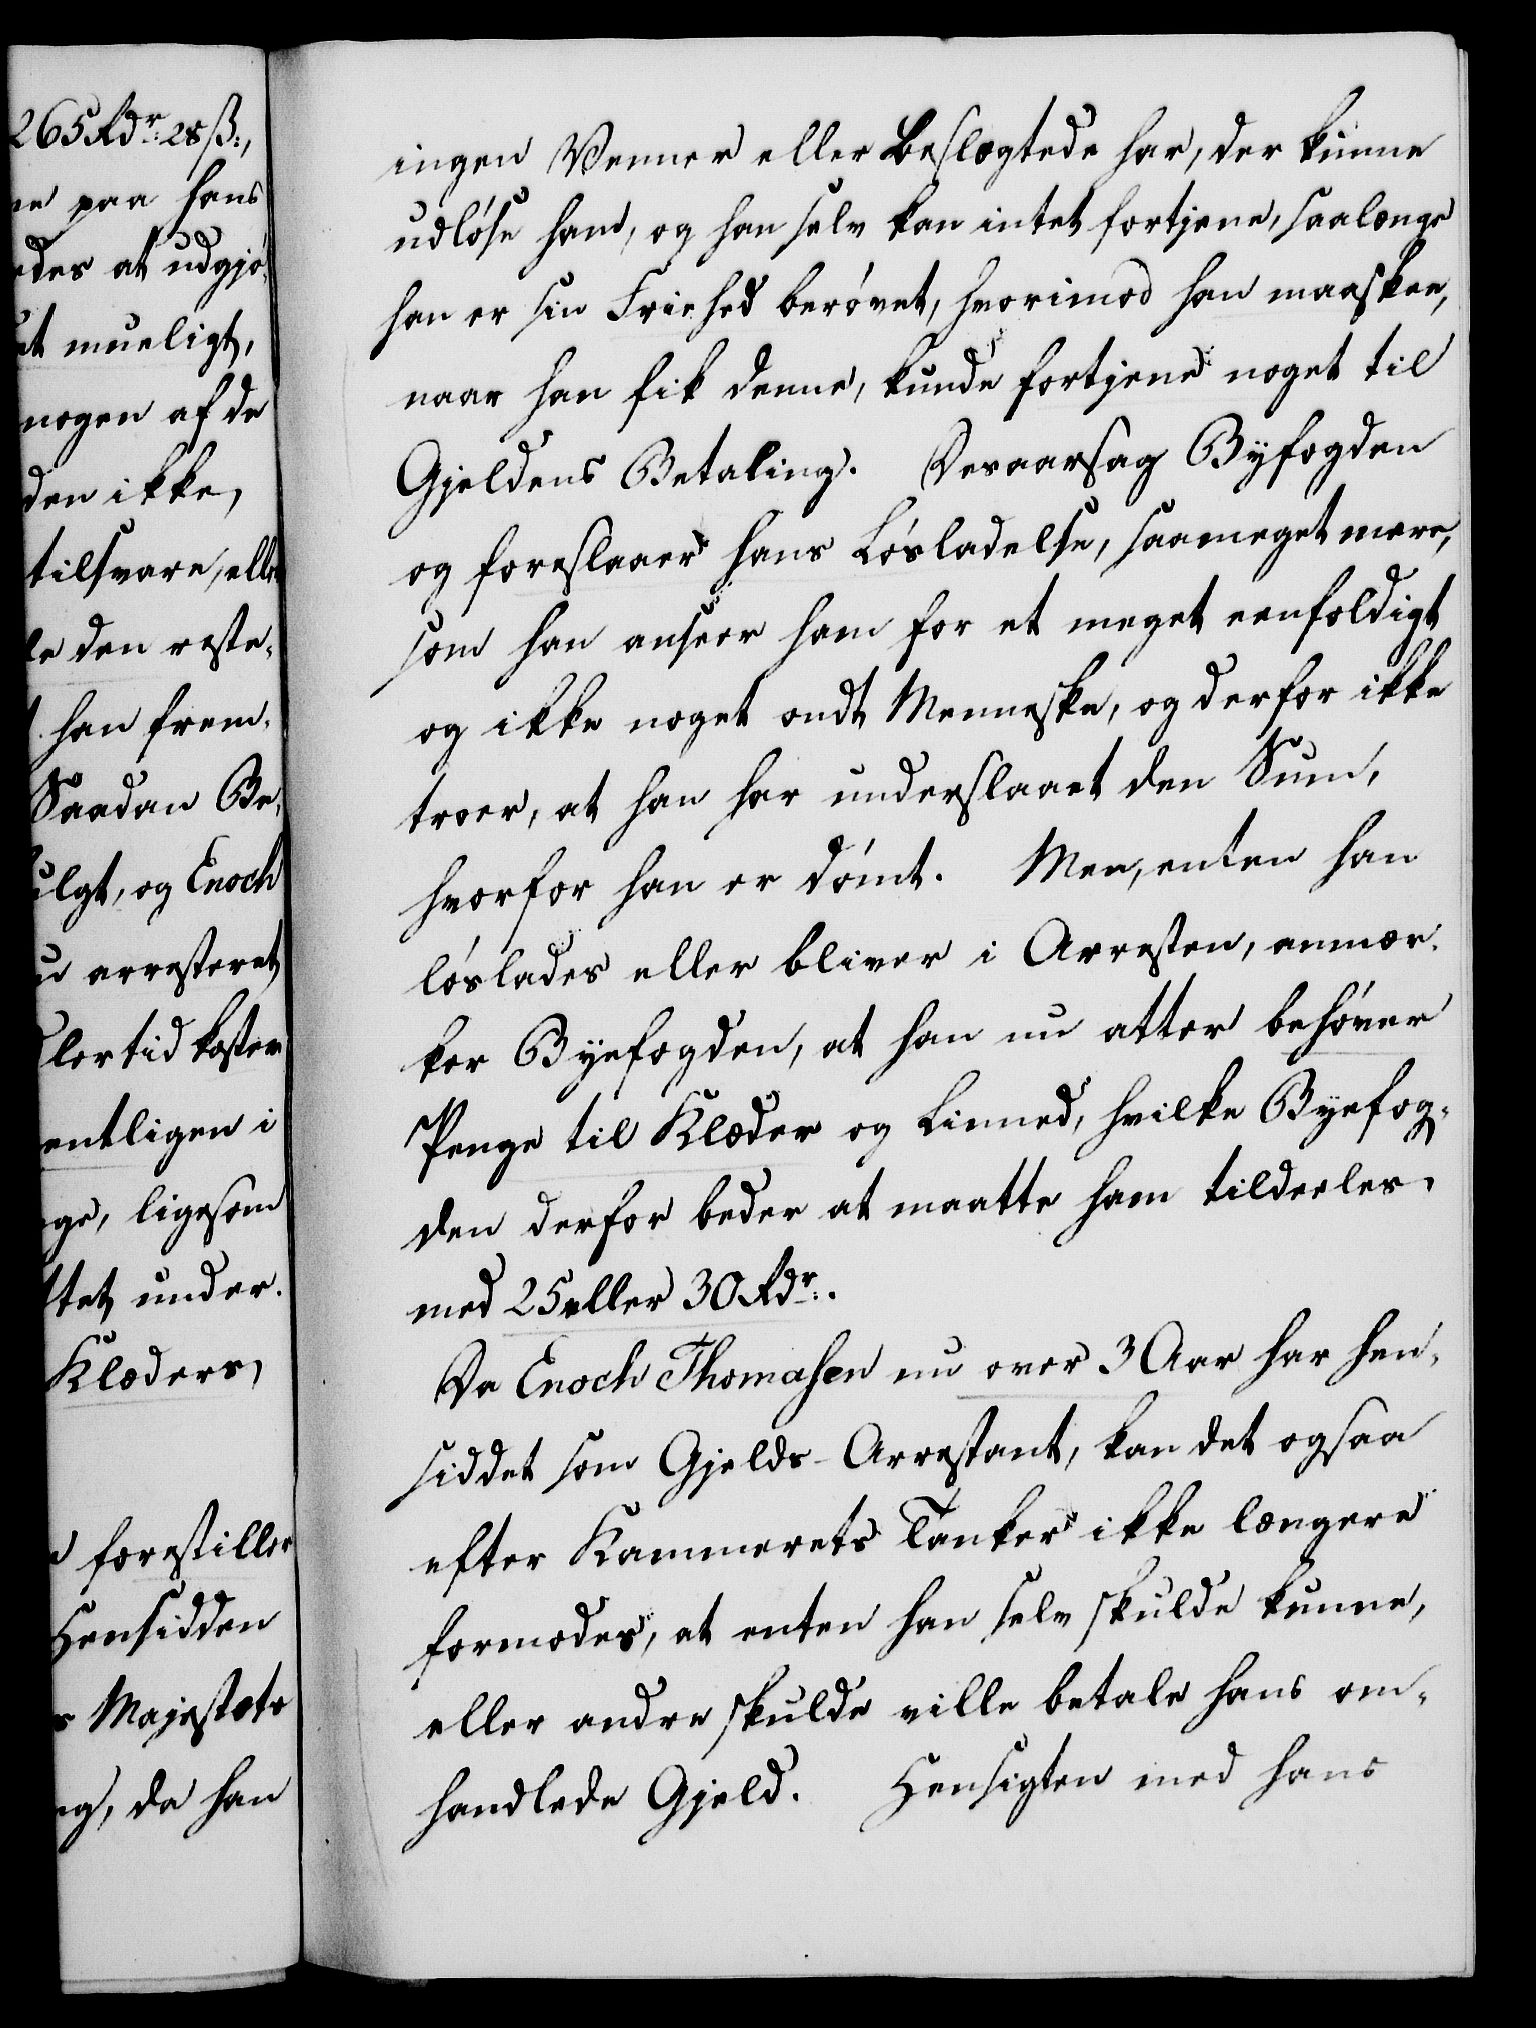 265 Rdr: 28 ß:,
ne paa hans
edes at udgjö-
et mueligt,
nogen af de
den ikke,
tilsvare, eller
le den reste-
han frem-
Saadan Be-
ulgt, og Enoch
u arresteret
lertid koster
entligen i
ge, ligesom
ttet under-
Klæders,
e forestiller
Hensidden
s Majestæts
ng, da han
ingen Venner eller Beslægtede har, der kunne
udløse ham, og han selv kan intet fortjene, saalænge
han er sin Friehed berøvet, hvorimod han maaskee,
naar han fik denne, kunde fortjene noget til
Gjeldens Betaling. Desaarsag Byfogden
og foreslaaer hans Løsladelse, saameget mere,
som han anseer ham for et meget eenfoldigt
og ikke noget ondt Menneske, og derfor ikke
troer, at han har underslaaet den Sum,
hvorfor han er dømt. Men, enten han
løslades eller bliver i Arresten, anmær-
ker Byefogden, at han nu atter behøver
Penge til Klæder og Linned, hvilke Byefog-
den derfor beder at maatte ham tildeeles,
med 25 eller 30 Rdr:.
Da Enoch Thomasen nu over 3 Aar har hen-
siddet som Gjelds-Arrestant, kan det ogsaa
efter Kammerets Tanker ikke længere
formodes, at enten han selv skulde kunne,
eller andre skulde ville betale hans om-
handlede Gjeld. Hensigten med hans